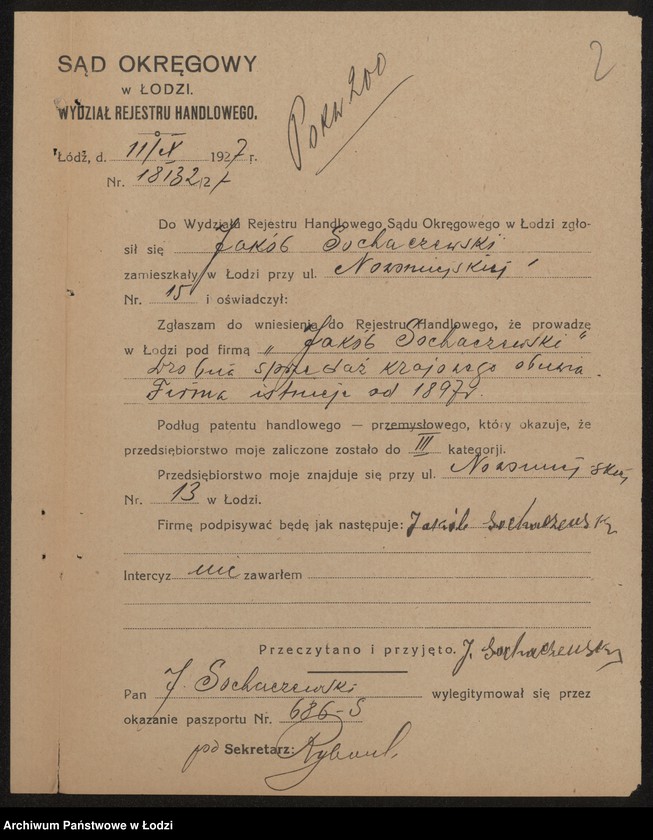 2
SĄD OKRĘGOWY
w ŁODZI.
WYDZIAŁ REJESTRU HANDLOWEGO.
Łódź, d. 11/X 1927 r.
Nr. 18132/27
200
Do Wydziału Rejestru Handlowego Sądu Okręgowego w Łodzi zgło-
sił się Jakób Sochaczewski
zamieszkały w Łodzi przy ul. Nowomiejskiej
Nr. 15 i oświadczył:
Zgłaszam do wniesienia do Rejestru Handlowego, że prowadzę
w Łodzi pod firmą „Jakób Sochaczewski"
Drobna sprzedaż krajowego obuwia.
Firma istnieje od 1897 r.
Podług patentu handlowego — przemysłowego, który okazuje, że
przedsiębiorstwo moje zaliczone zostało do III kategorji.
Przedsiębiorstwo moje znajduje się przy ul. Nowomiejskiej
Nr. 13 w Łodzi.
Firmę podpisywać będę jak następuje: Jakób Sochaczewski
Intercyz nie zawarłem
Przeczytano i przyjęto. J. Sochaczewski
Pan J. Sochaczewski wylegitymował się przez
okazanie paszportu Nr. 686-S
pd Sekretarz:
Archiwum Państwowe w Łodzi